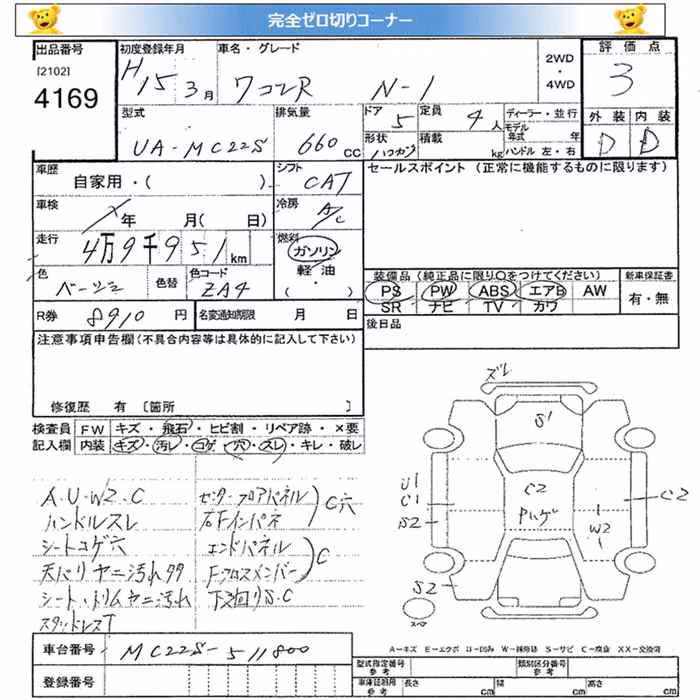 完全ゼロ切りコーナー
出品番号
[2102]
4169
初度登録年月
H15 3月
車名・グレード
ワゴンR N-1
2WD
・
4WD
評価点
3
型式
UA-MC22S
排気量
660 CC
ドア
5
定員
4人
形状
積載
kg
ディーラー・並行
モデル年式 年
ハンドル 左・右
外装 内装
D D
車歴
自家用・( )
シフト
CAT
セールスポイント (正常に機能するものに限ります)
車検
年 月( 日)
冷房
A/C
走行
4万9千951km
燃料
ガソリン
軽油
( ・ )
色
ベージュ
色替
色コード
ZA4
装備品 (純正品に限り○をつけてください)
PS PW ABS エアB AW
SR ナビ TV カワ
新車保証書
有・無
R券
8910 円
名変通知期限 月 日
後日品
注意事項申告欄 (不具合内容等は具体的に記入して下さい)
修復歴 有 〔箇所 〕
検査員記入欄
FW キズ・飛石・ヒビ割・リペア跡・×要
内装 キズ・汚レ・コゲ・穴・スレ・キレ・破レ
A・U・W2・C
ハンドルスレ
シートコゲ穴
天バリヤニ汚れ
シート・トリムヤニ汚れ
スタッドレス
センターフロアパネル
右Fインパネ
C穴
エンドパネル
Fクロスメンバー
C
下廻りS.C
ズレ
S1
C2
Pハゲ
U1
C1
S2
W2
C2
S2
スペア
A-キズ E-エクボ U-凹み W-補修跡 S-サビ C-腐食 XX-交換済
車台番号
MC22S-511800
登録番号
型式指定番号
参考
類別区分番号
参考
車庫証明用
参考
長さ cm
幅 cm
高さ cm